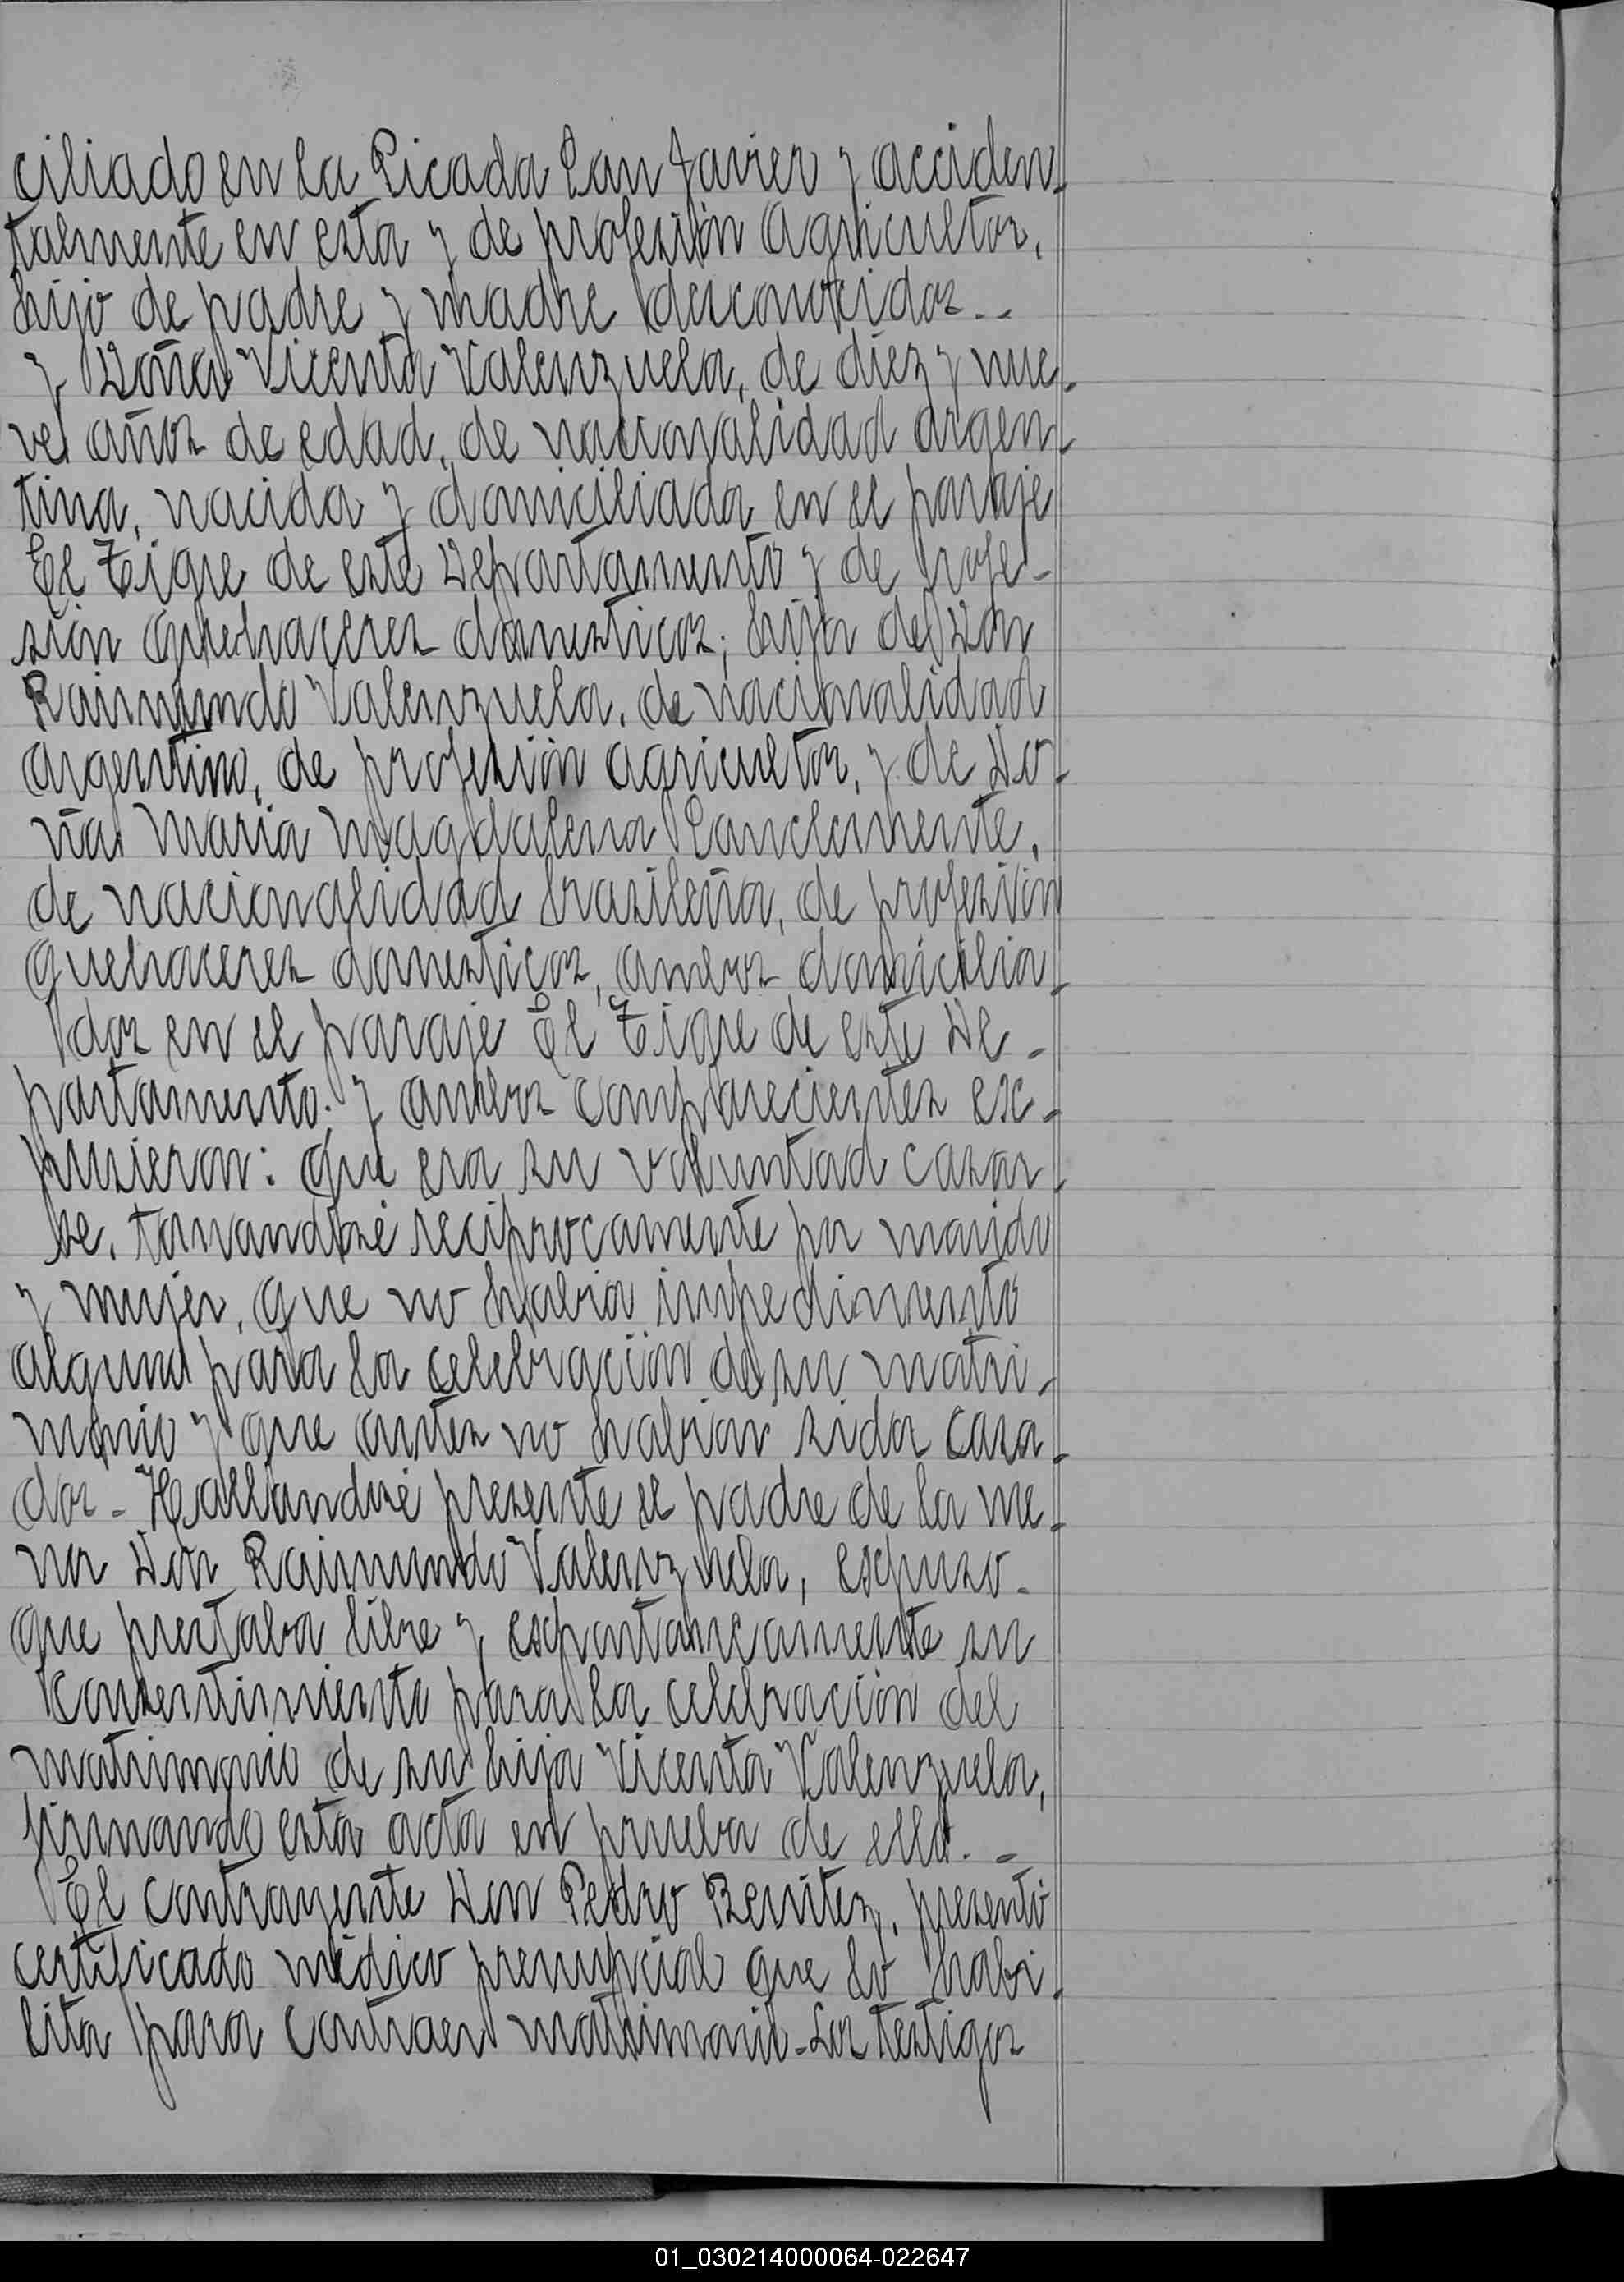 ciliado en la Picada San Javier y acciden-
talmente en esta y de profesión agricultor,
hijo de padre y madre desconocidos.-
y Doña Vicenta Valenzuela, de diez y nue-
ve años de edad, de nacionalidad argen-
tina, nacida y domiciliada en el paraje
El Tigre de este Departamento y de profe-
sión quehaceres domesticos; hija de Don
Raimundo Valenzuela, de nacionalidad
argentino, de profesión agricultor, y de Do-
ña Maria Magdalena Sanclemente,
de nacionalidad brasileña, de profesión
quehaceres domesticos, ambos domicilia-
dos en el paraje El Tigre de este De-
partamento; y ambos comparecientes ex-
pusieron: que era su voluntad casar-
se, tomandose reciprocamente por marido
y mujer, que no habia impedimento
alguno para la celebración de su matri-
monio y que antes no habian sidos casa-
dos- Hallandose presente el padre de la me-
nor Don Raimundo Valenzuela, expuso-
que prestaba libre y expontaneamente su
consentimiento para la celebración del
matrimonio de su hija Vicenta Valenzuela,
firmando esta acta en prueba de ello.-
El contrayente Don Pedro Benitez, presentó
certificado médico prenupcial que lo habi-
lita para contraer matrimonio-Los testigos
01_030214000064-022647